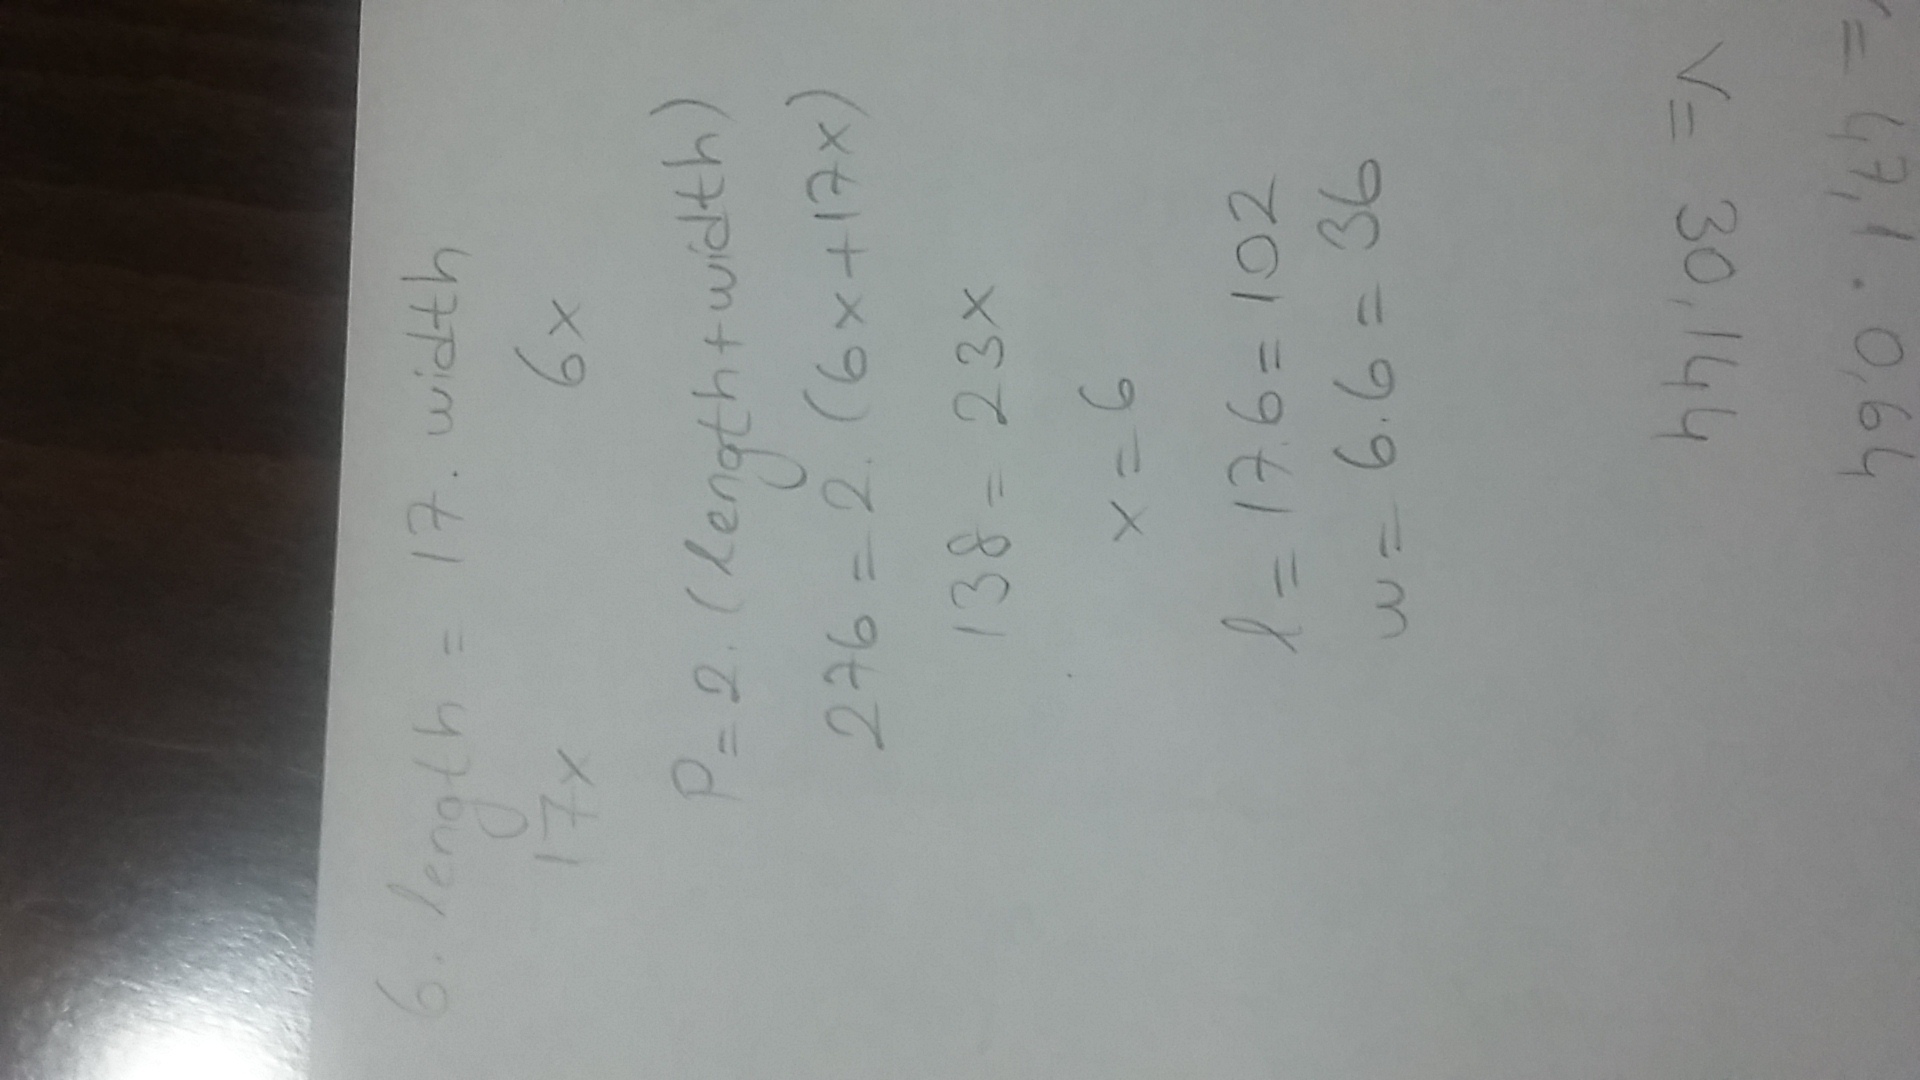 6. length = 17. width
17x 6x
P = 2. (length + width)
276 = 2. (6x + 17x)
138 = 23x
x = 6
l = 17.6 = 102
w = 6.6 = 36
= 47,1 . 0,64
V = 30,144